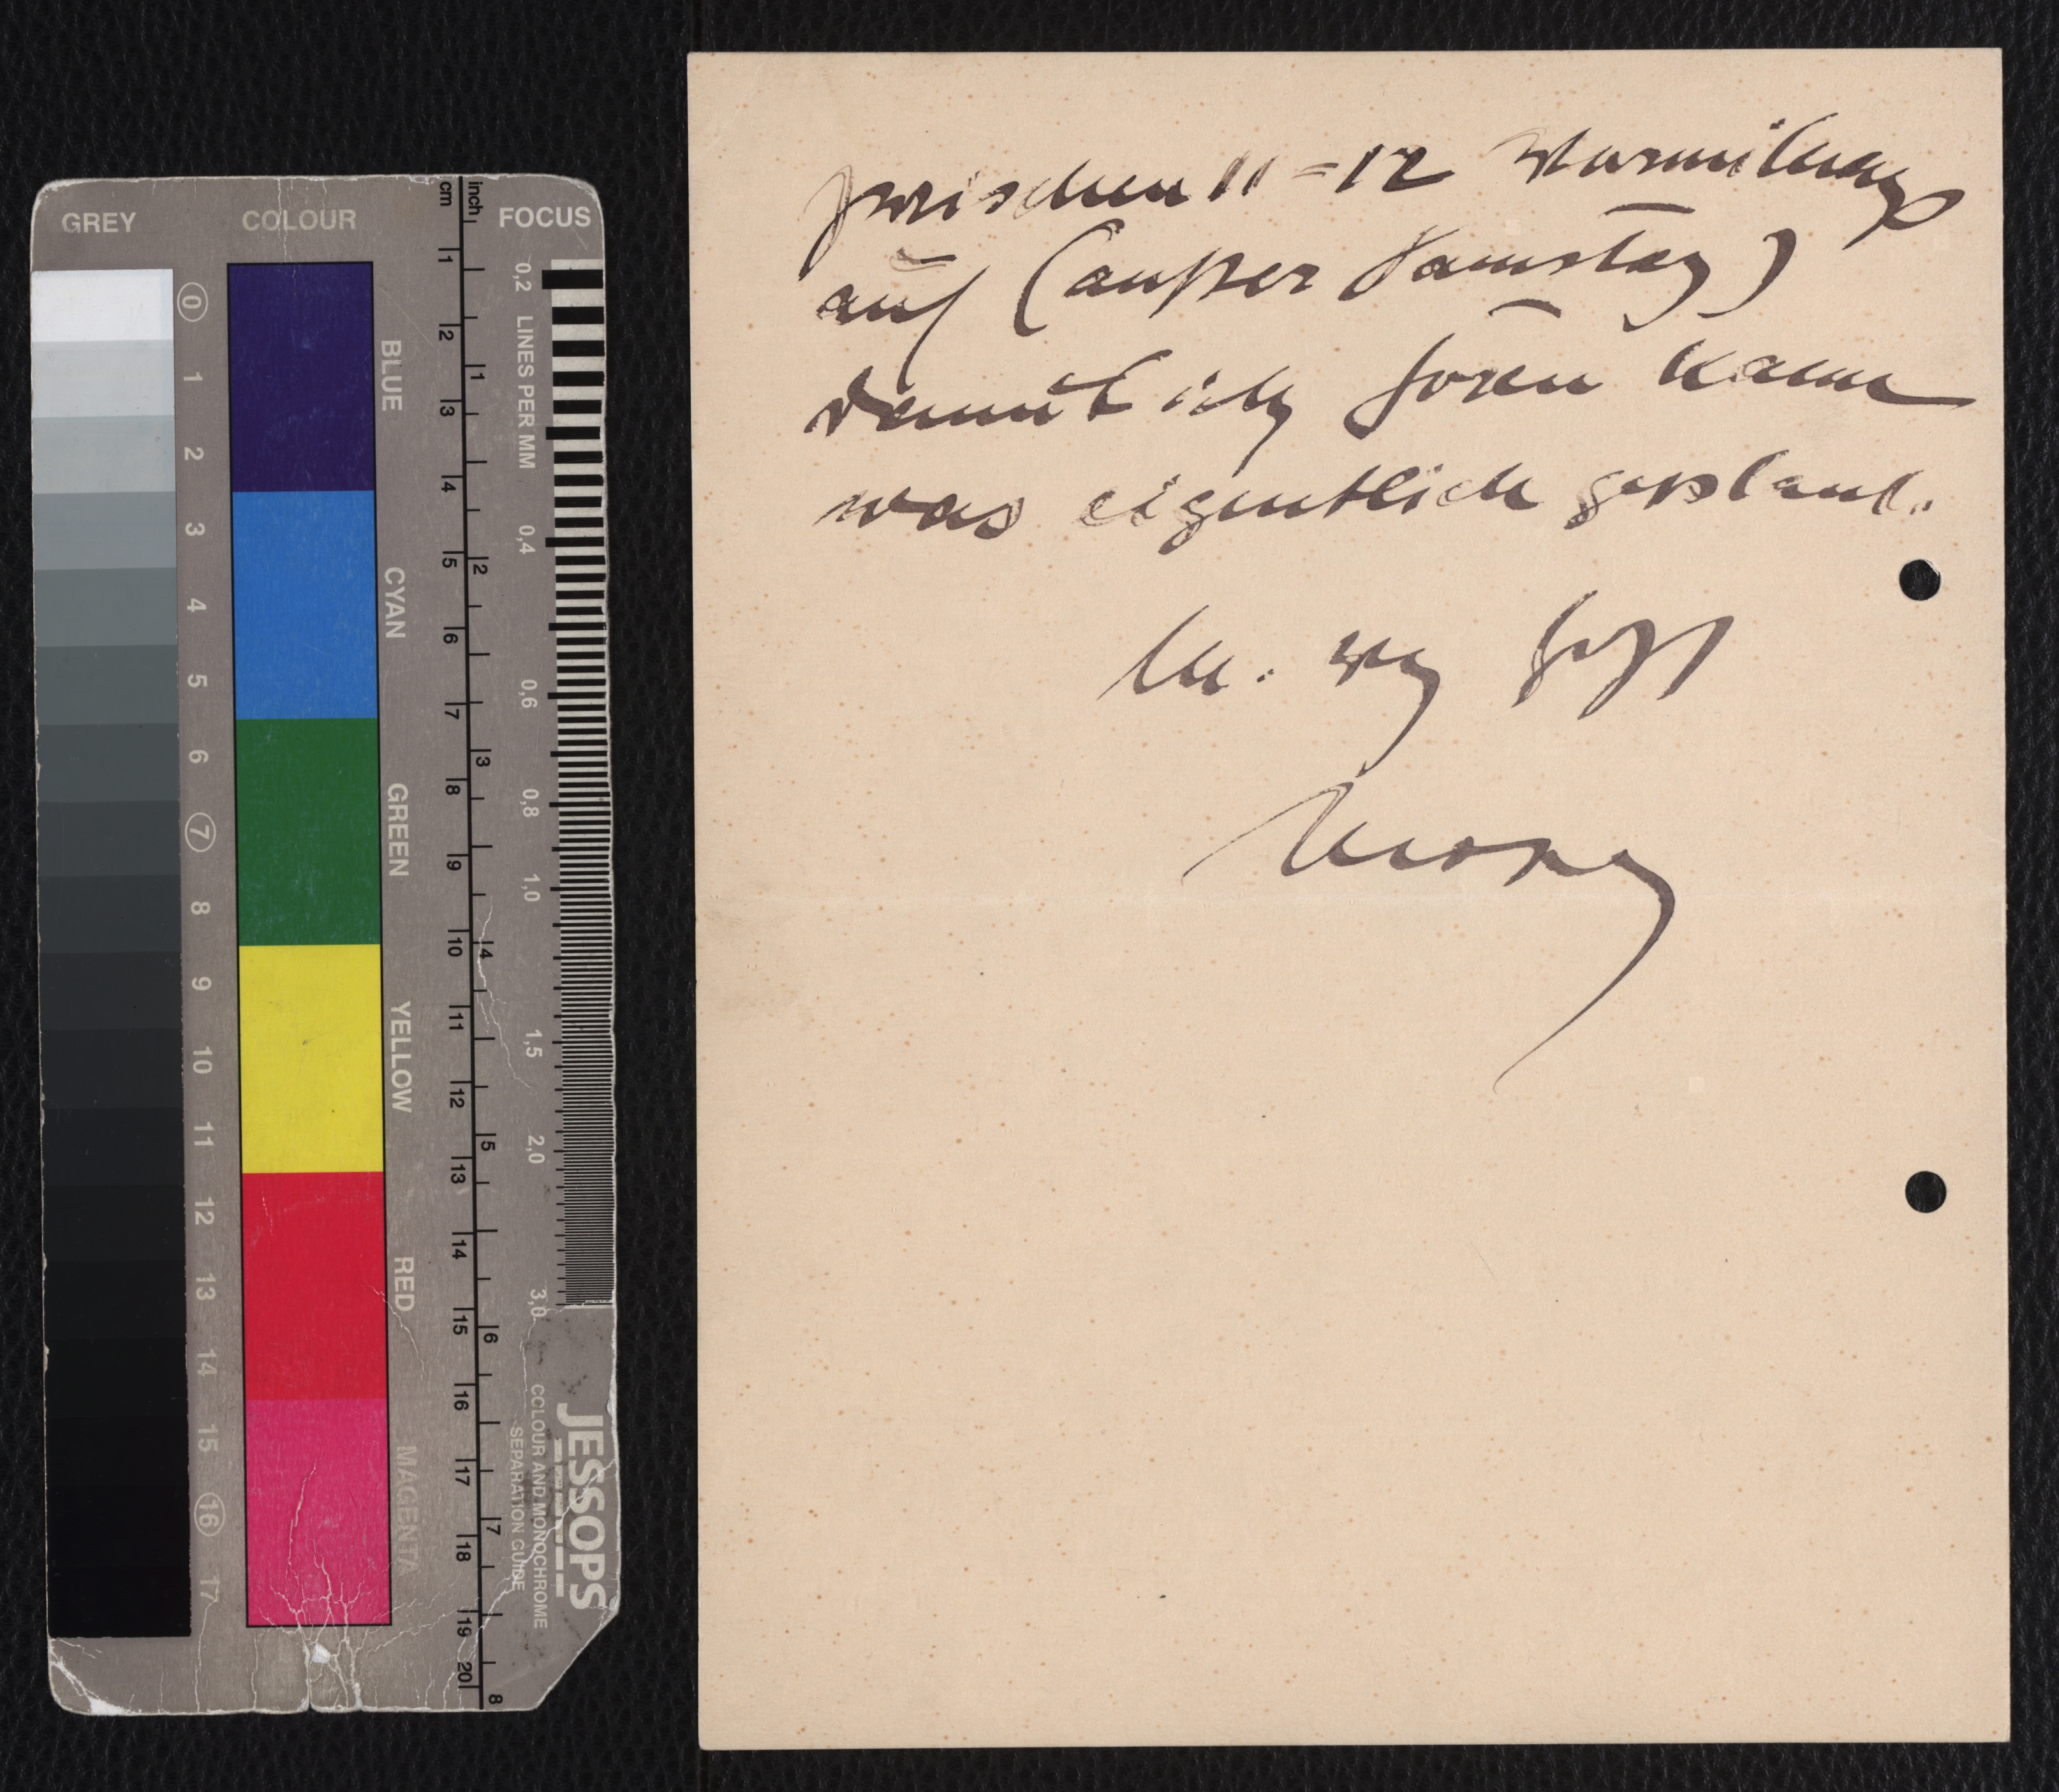 GREY
COLOUR
FOCUS
cm
inch
BLUE
CYAN
GREEN
YELLOW
RED
MAGENTA
0 1 2 3 4 5 6 7 8 9 10 11 12 13 14 15 16 17
1 2 3 4 5 6 7 8 9 10 11 12 13 14 15 16 17 18 19 20
1 2 3 4 5 6 7 8
0,2 LINES PER MM
0,4
0,6
0,8
1,0
1,5
2,0
3,0
JESSOPS
COLOUR AND MONOCHROME
SEPARATION GUIDE
zwischen 11=12 Vormittags
auf (außer Samstag)
damit ich hören kann
was eigentlich geplant.
M.